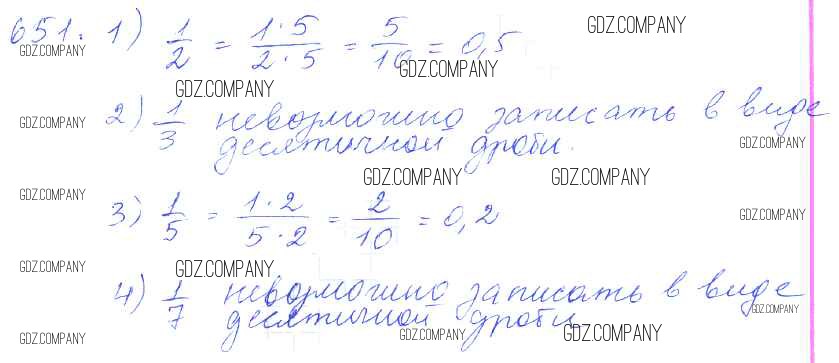 651. 1) 1/2 = 1·5/2·5 = 5/10 = 0,5
GDZ.COMPANY
GDZ.COMPANY
GDZ.COMPANY
GDZ.COMPANY
2) 1/3 невозможно записать в виде
GDZ.COMPANY
десятичной дроби.
GDZ.COMPANY
GDZ.COMPANY
GDZ.COMPANY
GDZ.COMPANY
3) 1/5 = 1·2/5·2 = 2/10 = 0,2
GDZ.COMPANY
GDZ.COMPANY
GDZ.COMPANY
4) 1/7 невозможно записать в виде
GDZ.COMPANY
десятичной дроби
GDZ.COMPANY
GDZ.COMPANY
GDZ.COMPANY